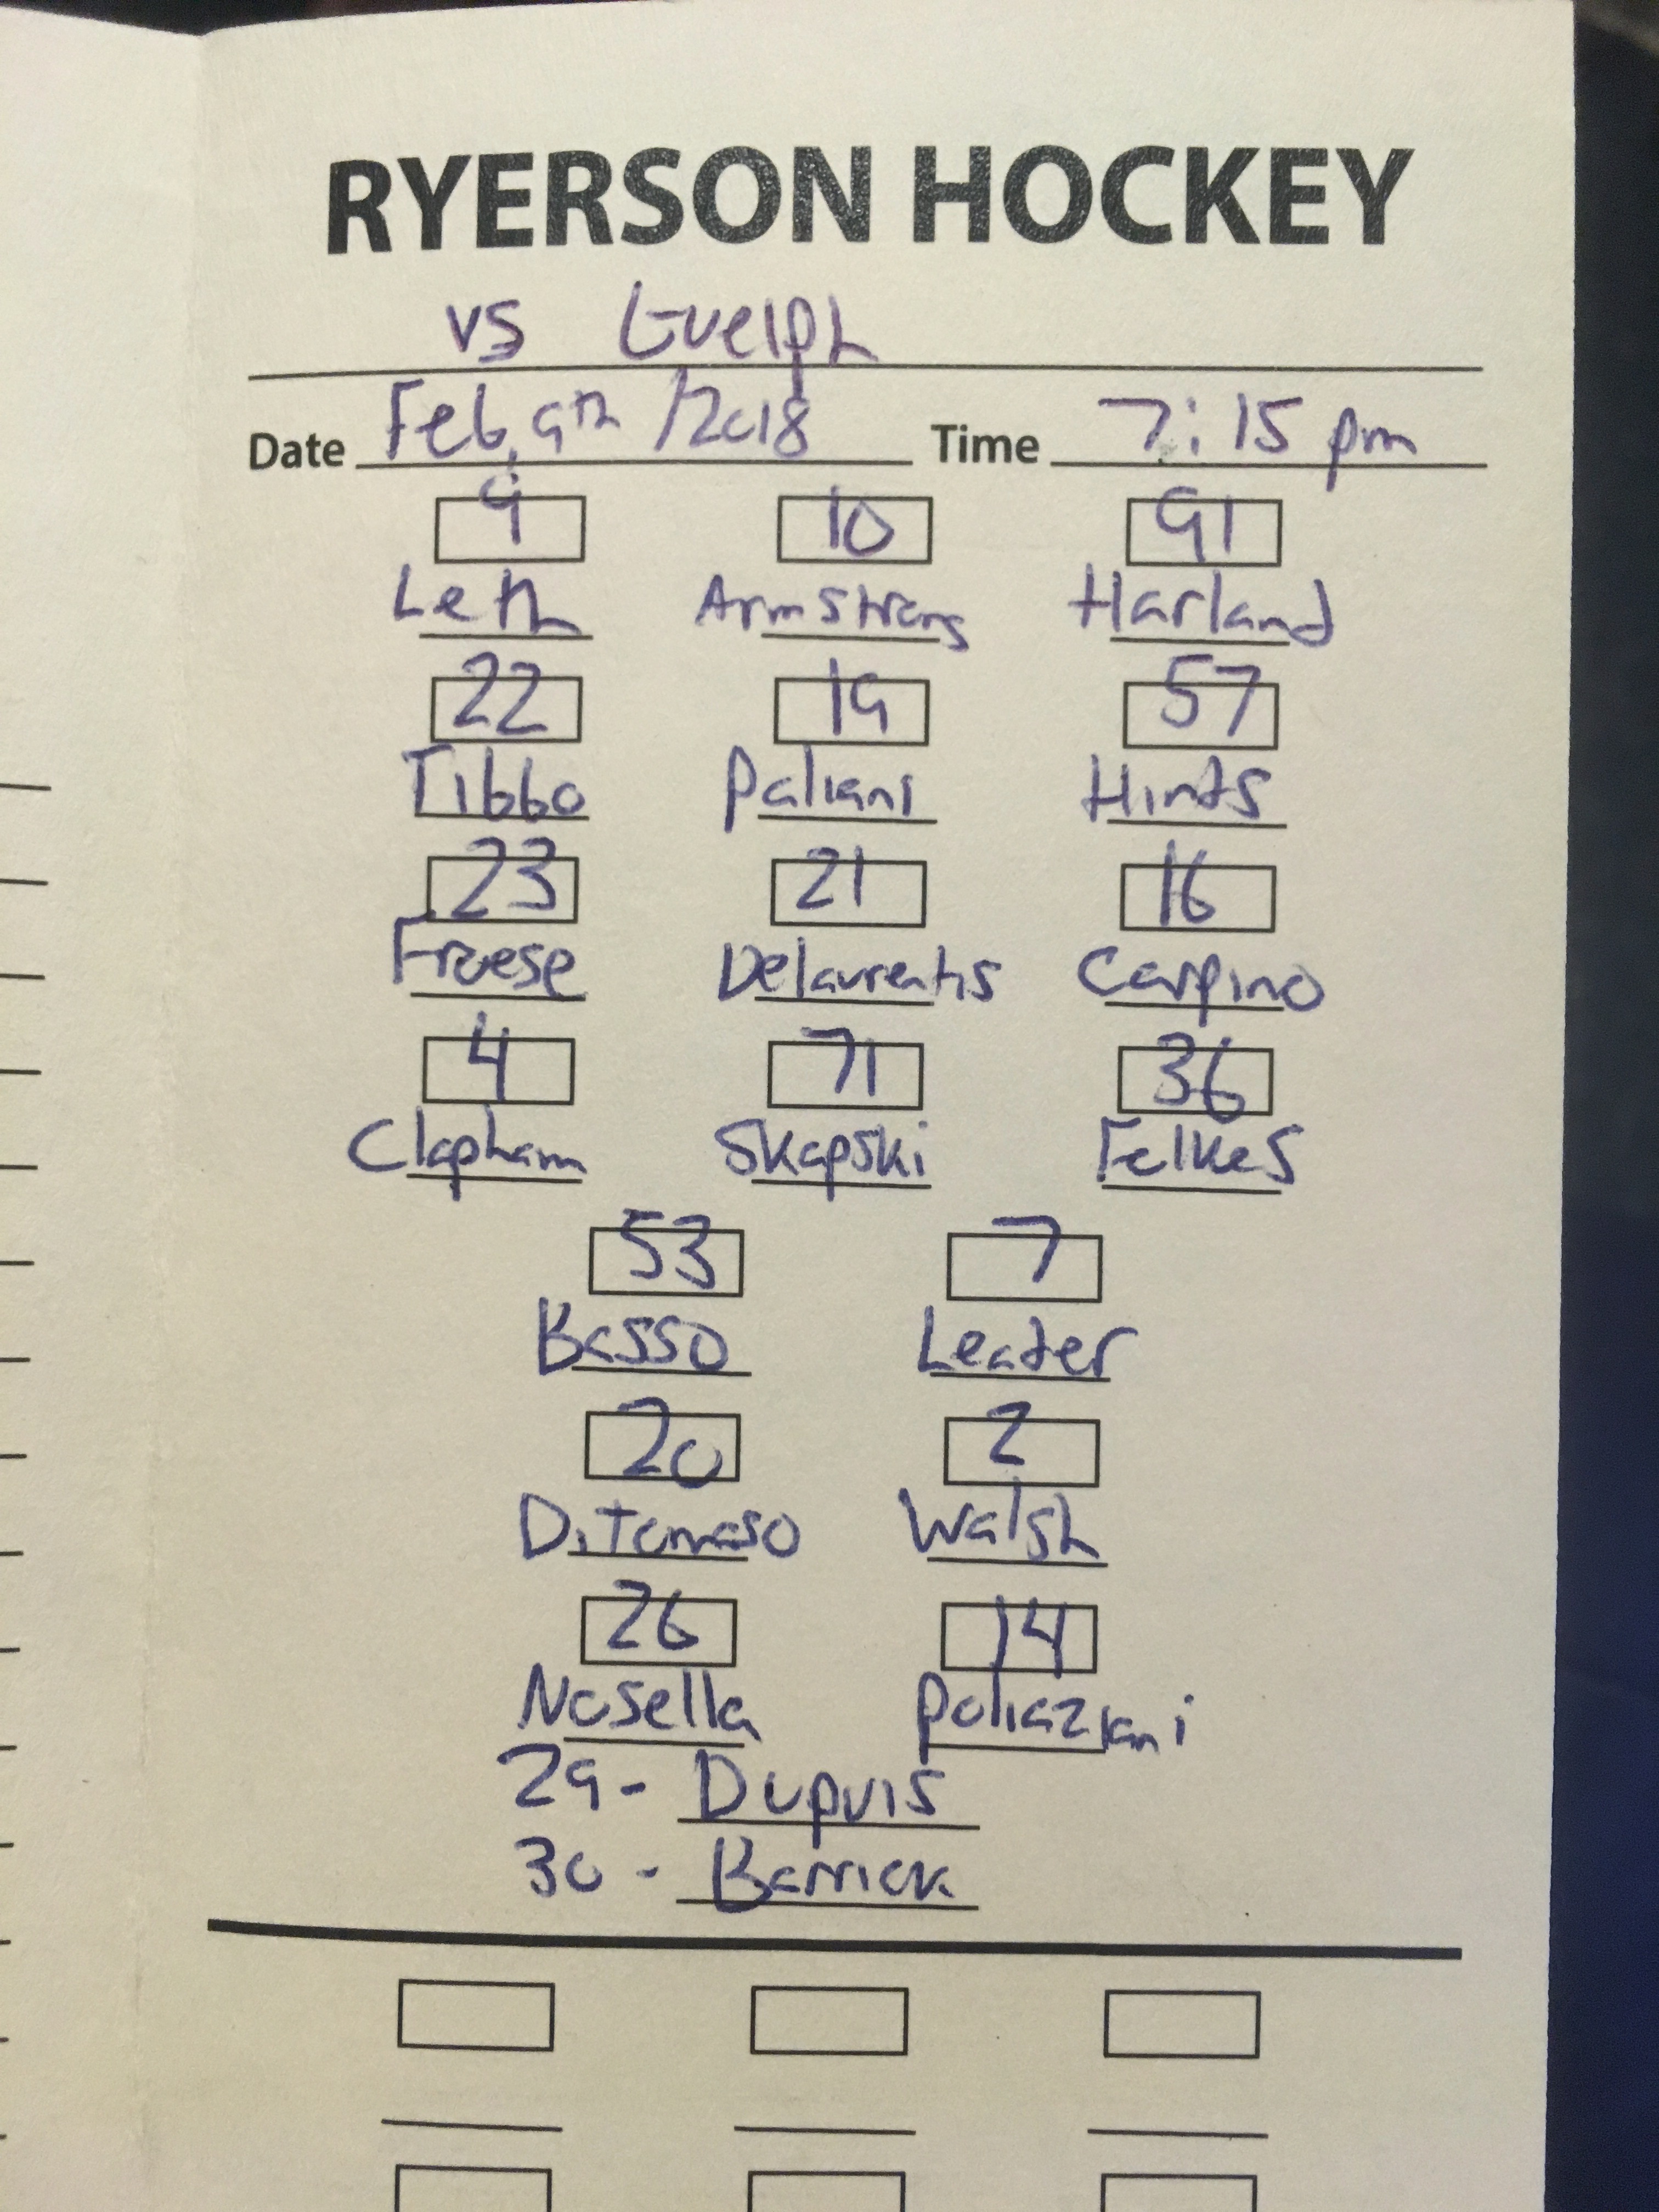 RYERSON HOCKEY
vs Guelph
Date Feb. 9th /2018 Time 7:15 pm
9 10 91
Leth Armstrong Harland
22 19 57
Tibbo Paliani Hinds
23 21 16
Froese Delaurentis Carpino
4 71 36
Clapham Skapski Felkes
53 7
Basso Leader
20 2
DiTomaso Walsh
26 14
Nosella Poliaziani
29 - Dupuis
30 - Barrick